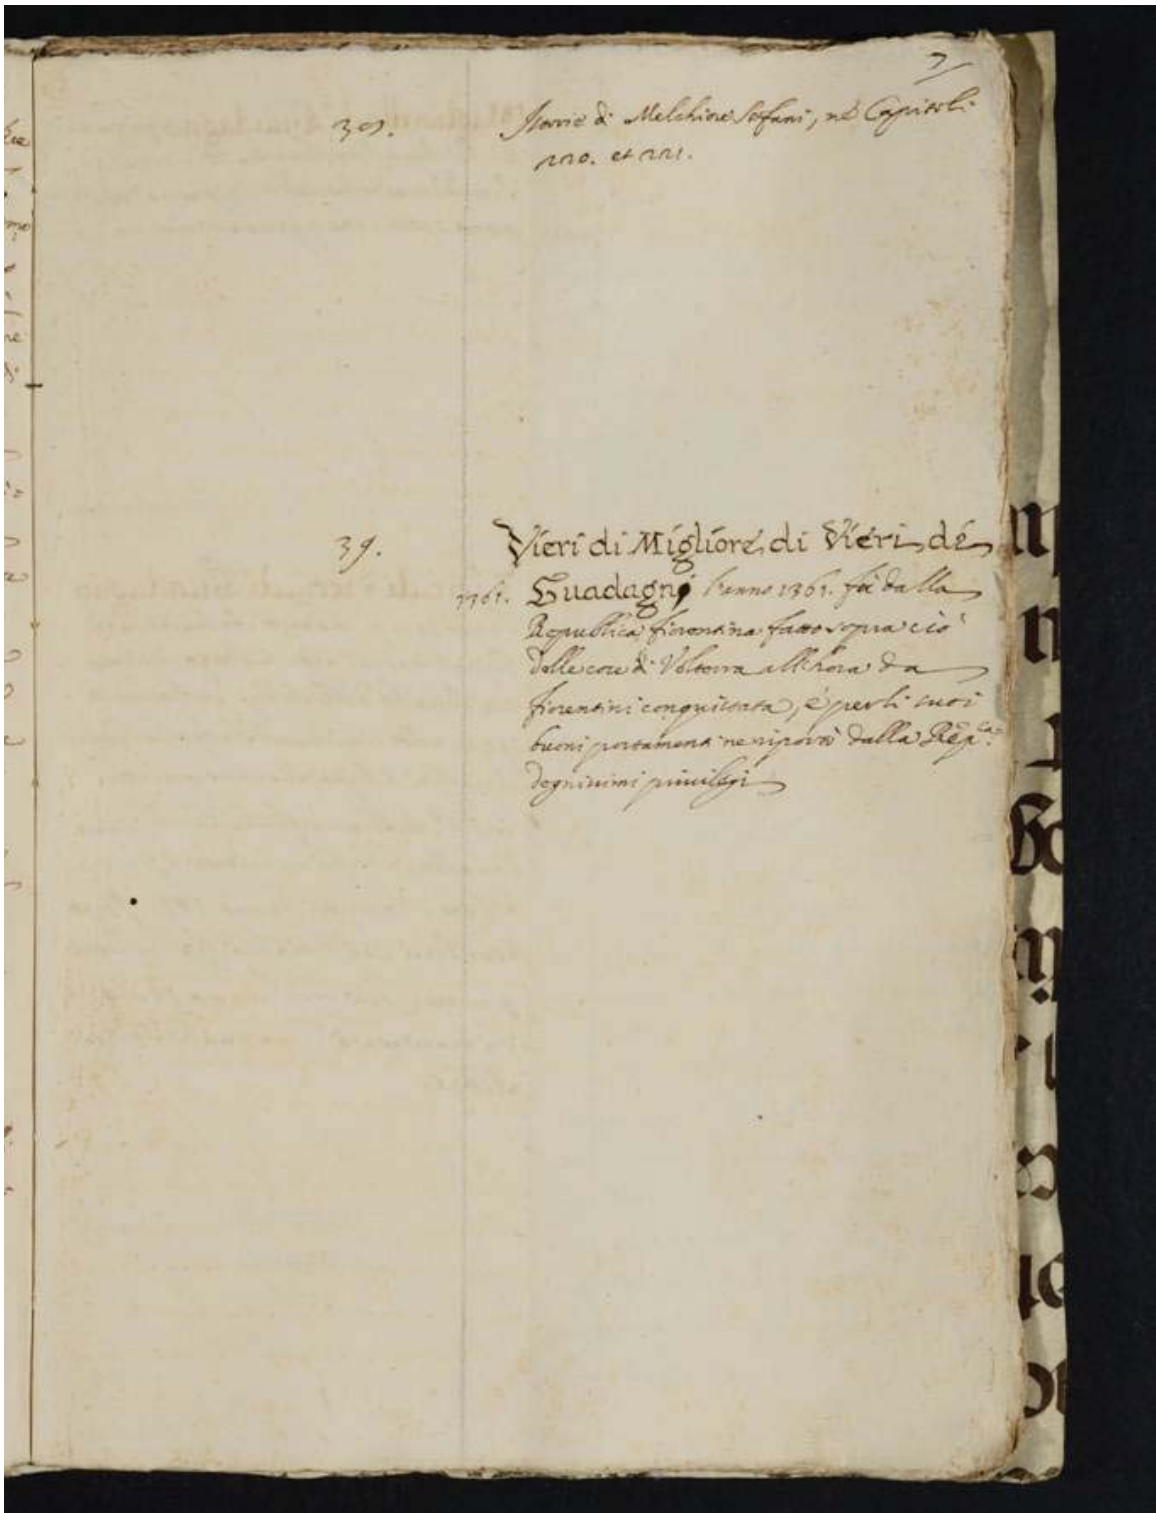 7
Istorie di Melchiore Stefani, ne Capitoli
et
39.
Vieri di Migliore di Vieri de
1361. Guadagni l'anno 1361. fù dalla
Republica fiorentina fatto sopra ciò
delle cose di Volterra all'hora da
fiorentini conquistata, è per li suoi
buoni portamenti ne riportò dalla Rep.ca
degnissimi privilegi